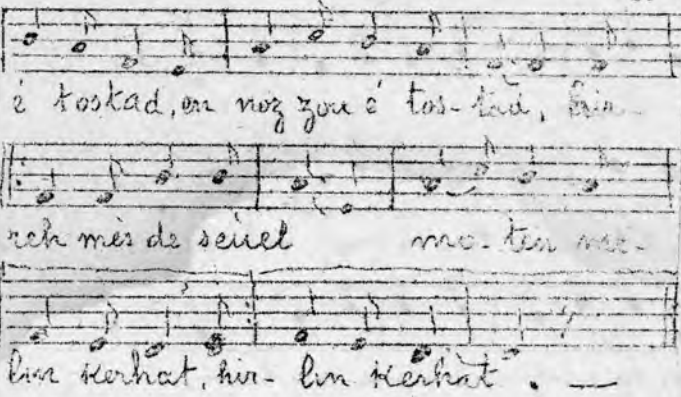 è tostad, en noz zou é tos-tad, hir-
reh mès de seùel mo-ten me-
lin kerhat, hir-lin kerhat. —